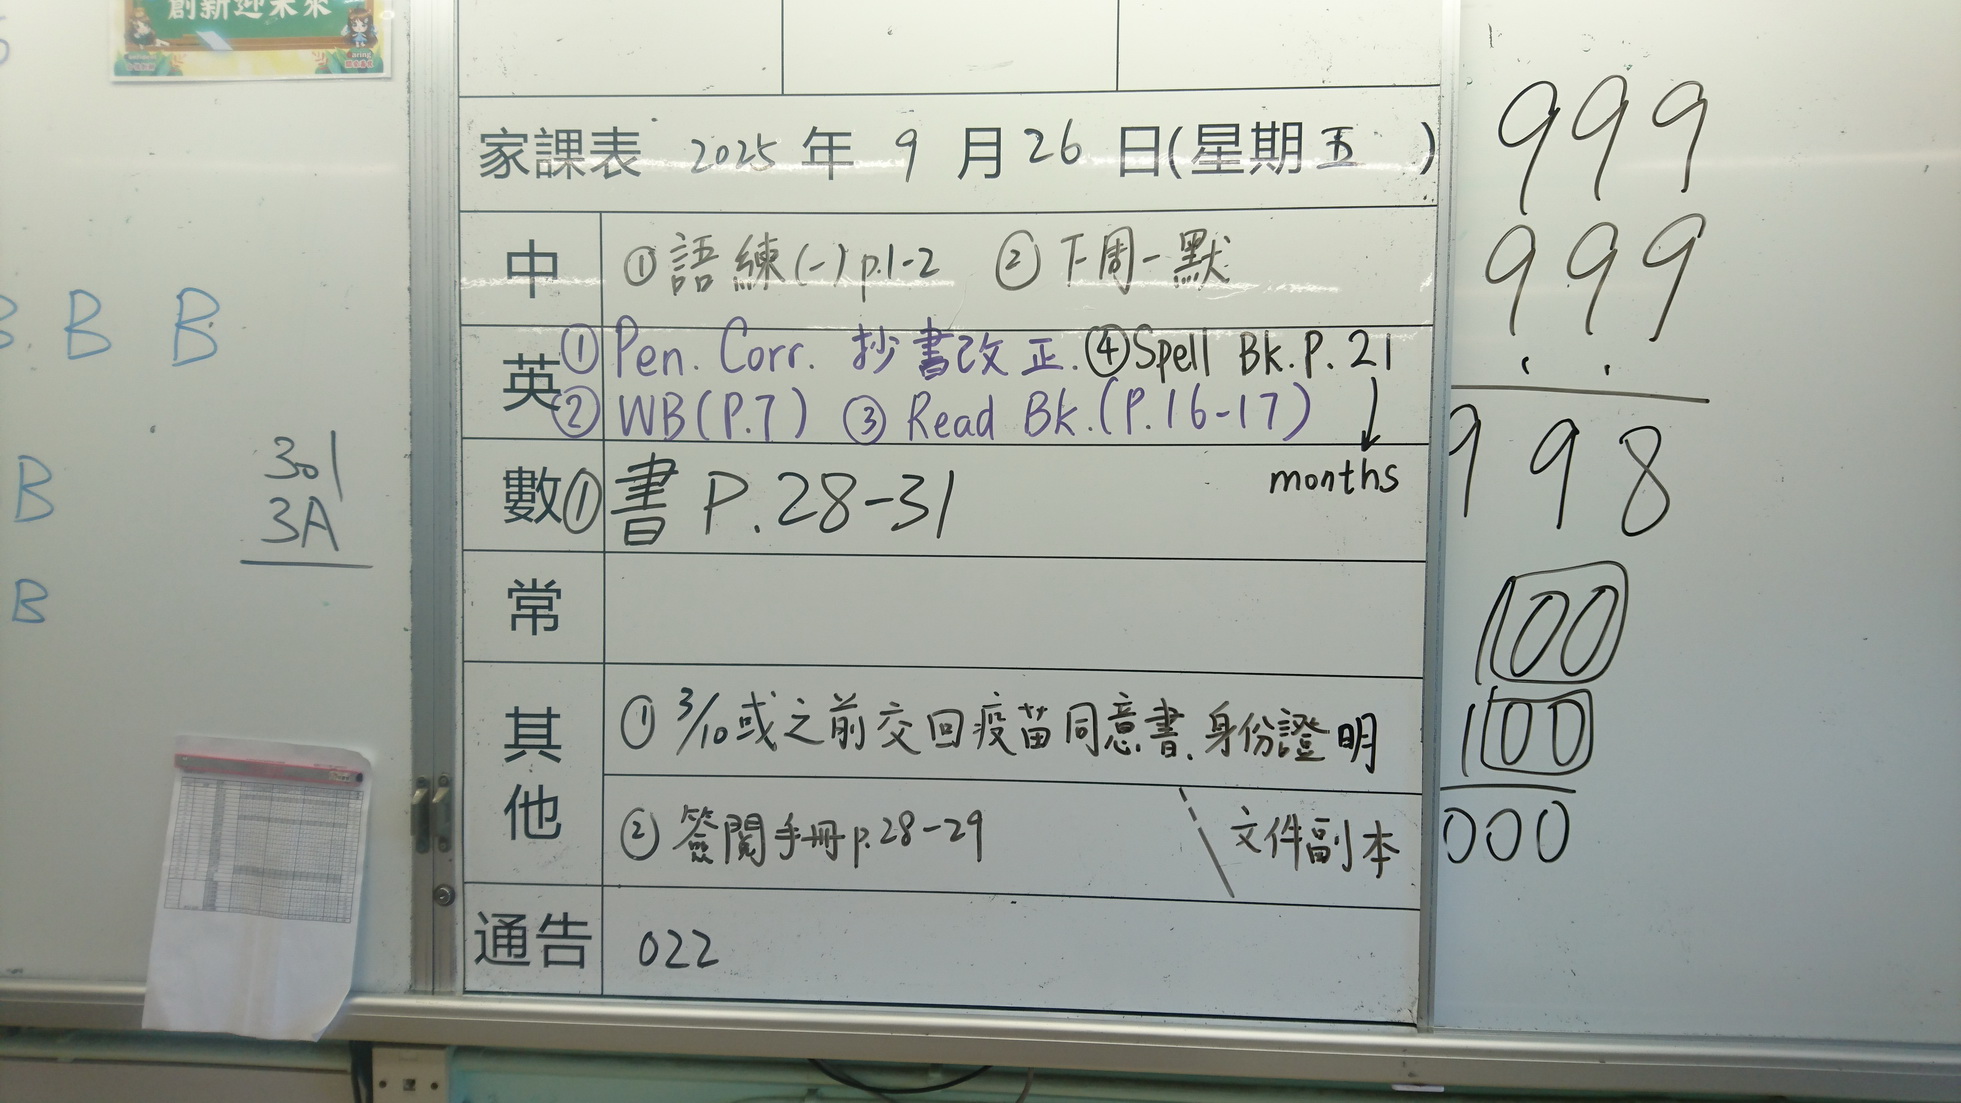 創新迎未來
B B
B
B
301
3A
家課表 2025 年 9 月 26 日(星期五 )
中 ① 語練(一)p.1-2 ② 下周一默
英 ① Pen. Corr. 抄書改正. ④ Spell Bk. P. 21
② WB(P.7) ③ Read Bk.(P.16-17) ↓
months
數 ① 書 P.28-31
常
其他 ① 3/10或之前交回疫苗同意書、身份證明
② 簽閱手冊p.28-29 文件副本
通告 022
999
999
998
100
100
000